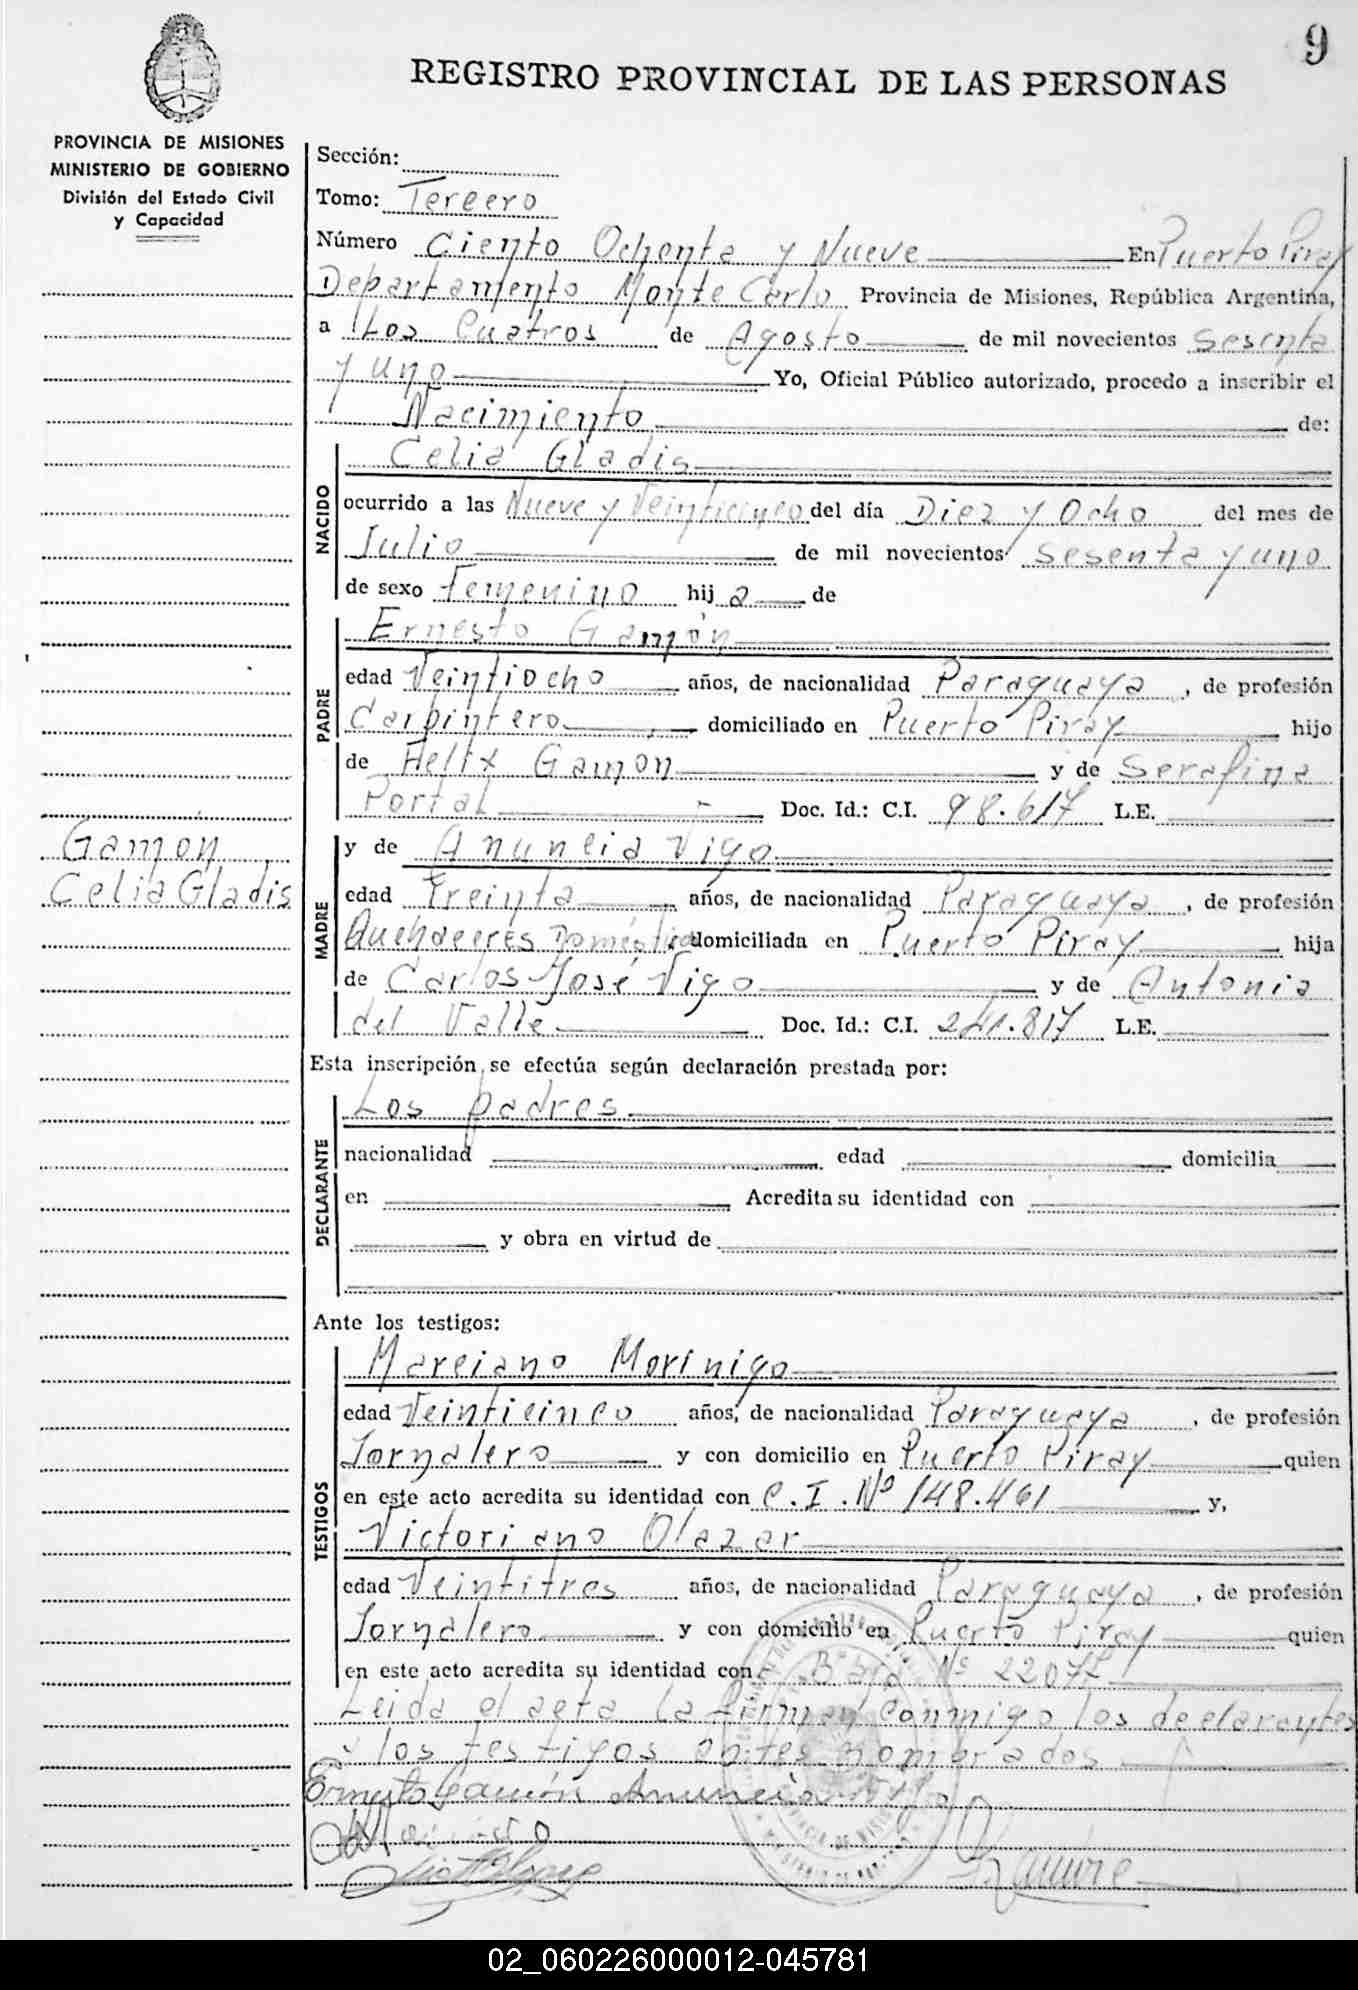 9
REGISTRO PROVINCIAL DE LAS PERSONAS
PROVINCIA DE MISIONES
MINISTERIO DE GOBIERNO
División del Estado Civil
y Capacidad
Sección:
Tomo: Tercero
Número Ciento Ochenta y Nueve En Puerto Piray
Departamento Monte Carlo Provincia de Misiones, República Argentina,
a Los Cuatros de Agosto de mil novecientos sesenta
y uno Yo, Oficial Público autorizado, procedo a inscribir el
Nacimiento de:
NACIDO
Celia Gladis
ocurrido a las Nueve y Veinticinco del día Diez y Ocho del mes de
Julio de mil novecientos sesenta y uno
de sexo Femenino hij a de
PADRE
Ernesto Gamón
edad Veintiocho años, de nacionalidad Paraguaya, de profesión
Carpintero domiciliado en Puerto Piray hijo
de Felix Gamon y de Serafina
Portal Doc. Id.: C.I. 98.617 L.E.
Gamón
Celia Gladis
MADRE
y de Anuncia Vigo
edad Treinta años, de nacionalidad Paraguaya, de profesión
Quehaceres Doméstica domiciliada en Puerto Piray hija
de Carlos José Vigo y de Antonia
del Valle Doc. Id.: C.I. 241.817 L.E.
Esta inscripción se efectúa según declaración prestada por:
DECLARANTE
Los padres
nacionalidad edad domicilia
en Acredita su identidad con
y obra en virtud de
Ante los testigos:
TESTIGOS
Marciano Morinigo
edad Veinticinco años, de nacionalidad Paraguaya, de profesión
Jornalero y con domicilio en Puerto Piray quien
en este acto acredita su identidad con C.I. Nº 148.461 y,
Victoriano Olazar
edad Veintitres años, de nacionalidad Paraguaya, de profesión
Jornalero y con domicilio en Puerto Piray quien
en este acto acredita su identidad con Nº 22072
Leida el acta la firman conmigo los declarantes
y los testigos antes nombrados
Ernesto Gamón Anuncia Vigo
02_060226000012-045781